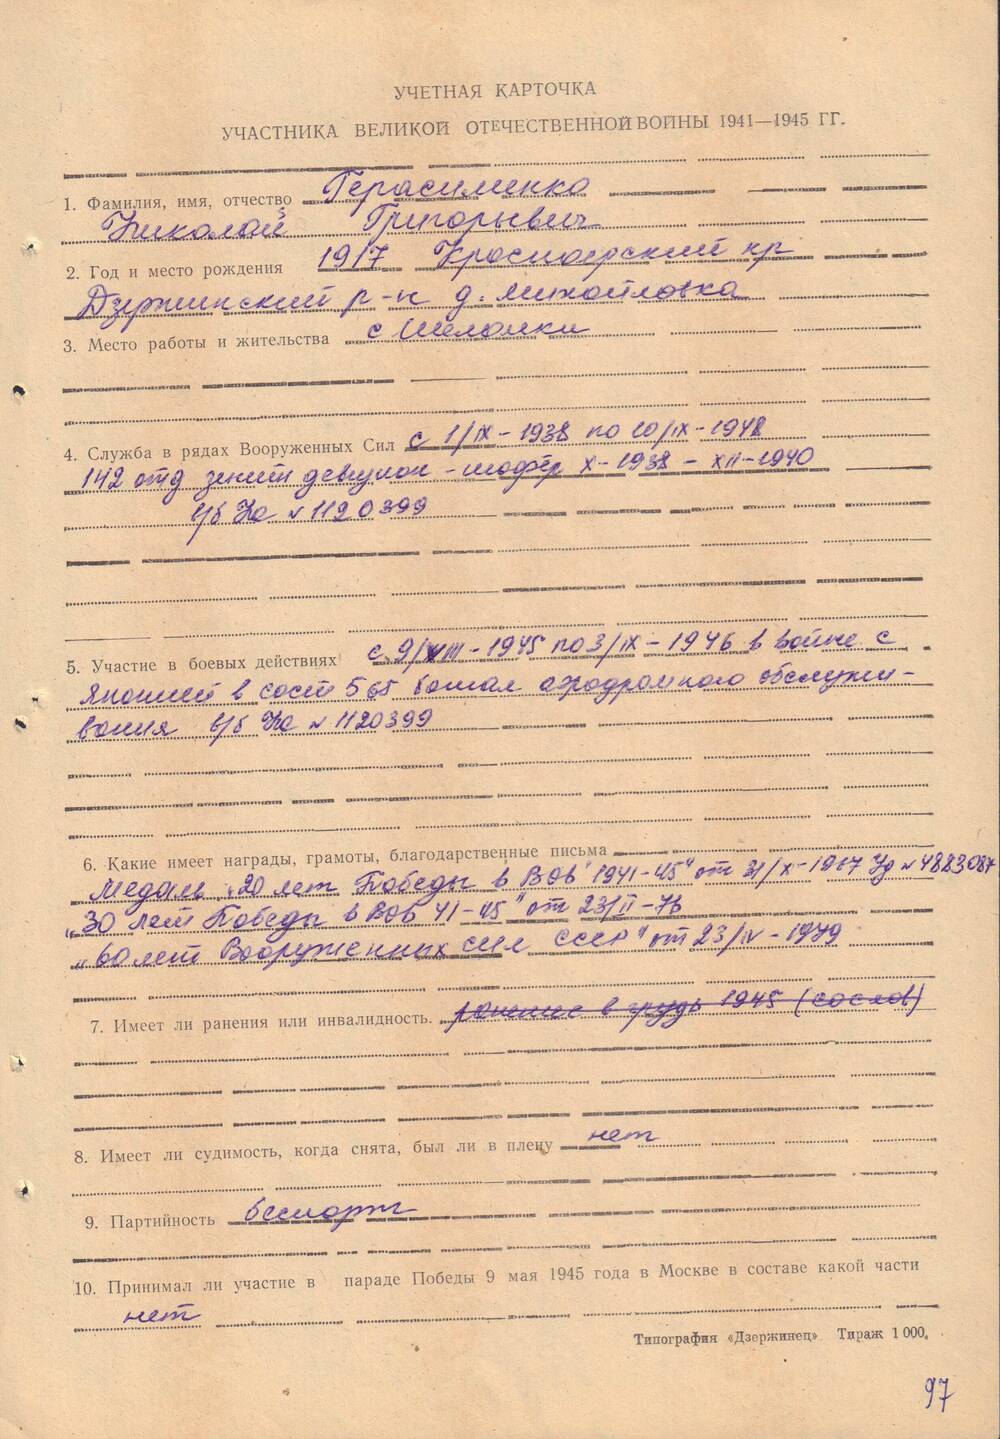 УЧЕТНАЯ КАРТОЧКА
УЧАСТНИКА ВЕЛИКОЙ ОТЕЧЕСТВЕННОЙ ВОЙНЫ 1941—1945 ГГ.
1. Фамилия, имя, отчество Герасименко
Николай Григорьевич
2. Год и место рождения 1917 Красноярский кр
Дзержинский р-н д. Михайловка
3. Место работы и жительства с Шеломки
4. Служба в рядах Вооруженных Сил с 1/IX-1938 по 10/IX-1948
142 отд зенит дивизион - шофёр X-1938 - XII-1940
в/б № 1120399
5. Участие в боевых действиях с 9/VIII-1945 по 3/IX-1946 в войне с
Японией в сост 565 батал аэродромного обслужи-
вания в/б № 1120399
6. Какие имеет награды, грамоты, благодарственные письма
Медаль „20 лет Победы в ВОВ 1941-45" от 31/X-1967 Уд № 4883087
„30 лет Победы в ВОВ 41-45" от 23/II-76
„60 лет Вооруженных сил СССР" от 23/IV-1979
7. Имеет ли ранения или инвалидность. ранение в грудь 1945 (со слов)
8. Имеет ли судимость, когда снята, был ли в плену нет
9. Партийность беспарт
10. Принимал ли участие в параде Победы 9 мая 1945 года в Москве в составе какой части
нет
Типография «Дзержинец» Тираж 1 000.
97